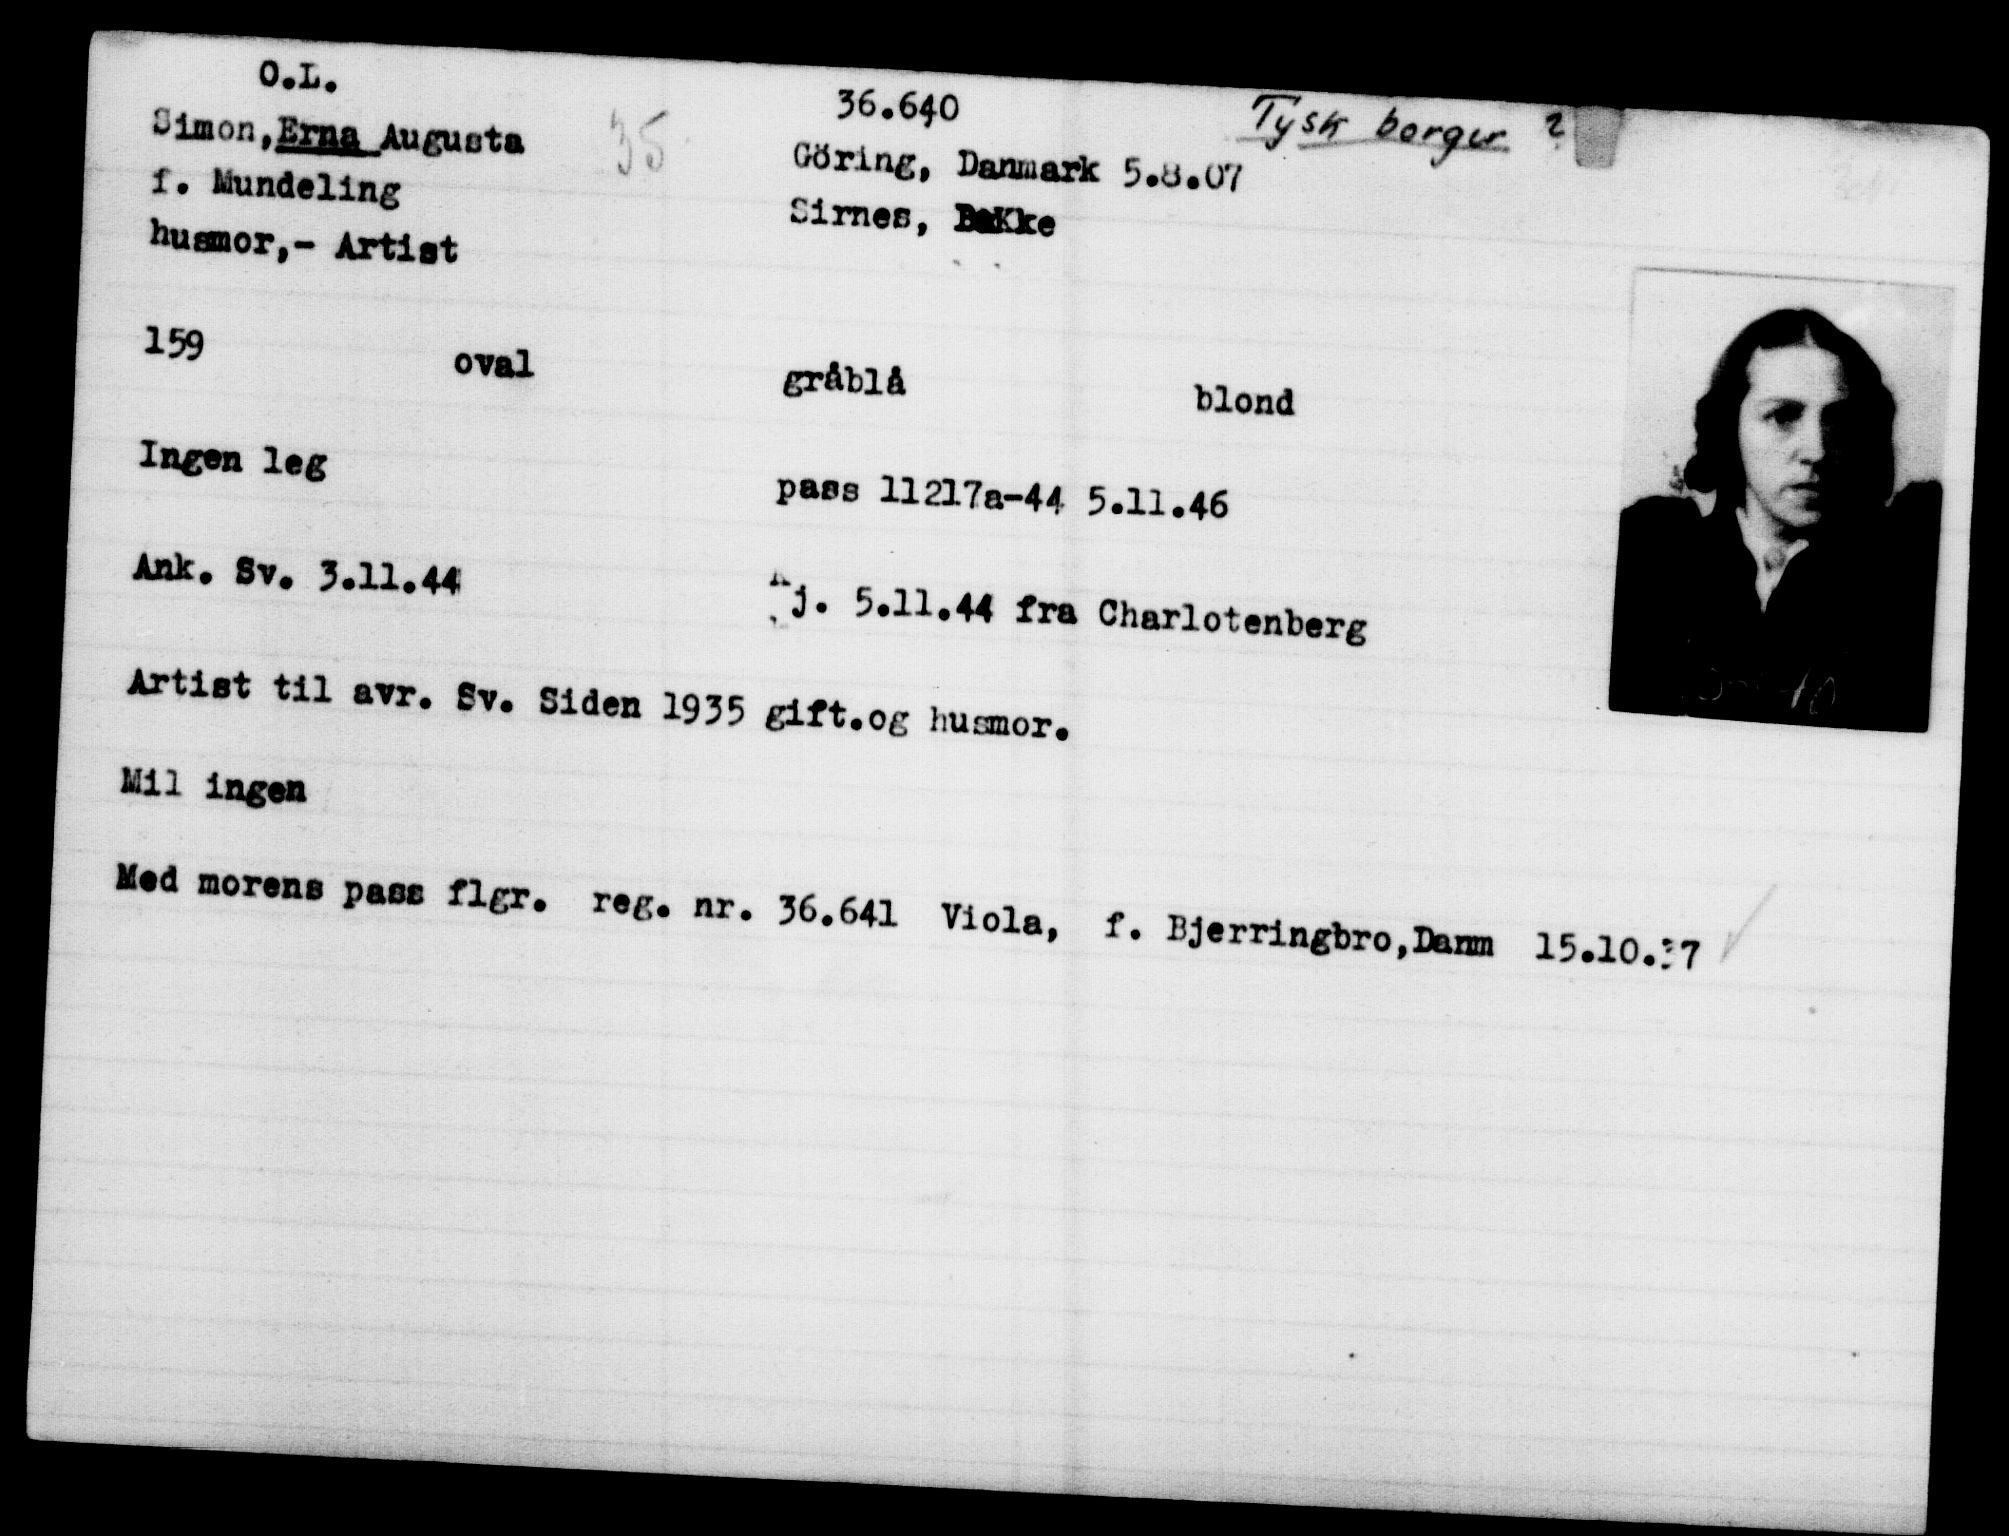 O.L. 36.640 Tysk borger ?
Simon, Erna Augusta 35 Göring, Danmark 5.8.07
f. Mundeling Sirnes, Bakke
husmor,- Artist
159 oval gråblå blond
Ingen leg pass 11217a-44 5.11.46
Ank. Sv. 3.11.44 Kj. 5.11.44 fra Charlotenberg
Artist til avr. Sv. Siden 1935 gift.og husmor.
Mil ingen
Med morens pass flgr. reg. nr. 36.641 Viola, f. Bjerringbro,Danm 15.10.37